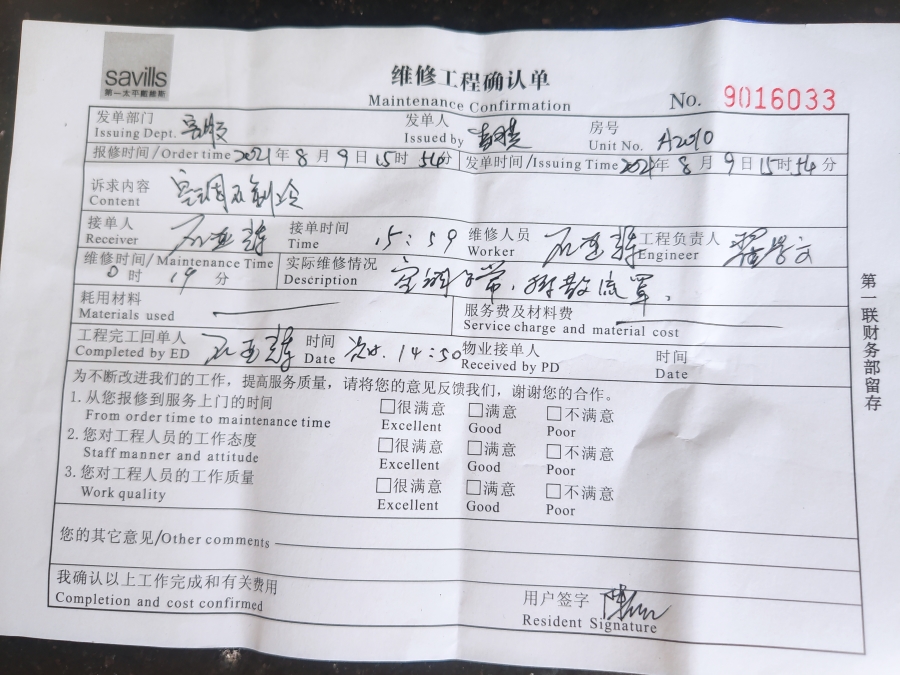 savills
第一太平戴维斯
维修工程确认单
Maintenance Confirmation
No. 9016033
发单部门 发单人 房号
Issuing Dept. 客服 Issued by Unit No. A2010
报修时间/Order time 2021年8月9日15时54分 发单时间/Issuing Time 2021年8月9日15时54分
诉求内容
Content 空调不制冷
接单人 接单时间 维修人员 工程负责人
Receiver Time 15:59 Worker Engineer
维修时间/Maintenance Time 实际维修情况
0时19分 Description 空调正常,拆散流罩.
耗用材料 服务费及材料费
Materials used Service charge and material cost
工程完工回单人 时间 物业接单人 时间
Completed by ED Date 次日.14:50 Received by PD Date
为不断改进我们的工作，提高服务质量，请将您的意见反馈我们，谢谢您的合作。
1. 从您报修到服务上门的时间 □很满意 □满意 □不满意
From order time to maintenance time Excellent Good Poor
2. 您对工程人员的工作态度 □很满意 □满意 □不满意
Staff manner and attitude Excellent Good Poor
3. 您对工程人员的工作质量 □很满意 □满意 □不满意
Work quality Excellent Good Poor
您的其它意见/Other comments
我确认以上工作完成和有关费用 用户签字
Completion and cost confirmed Resident Signature
第一联财务部留存